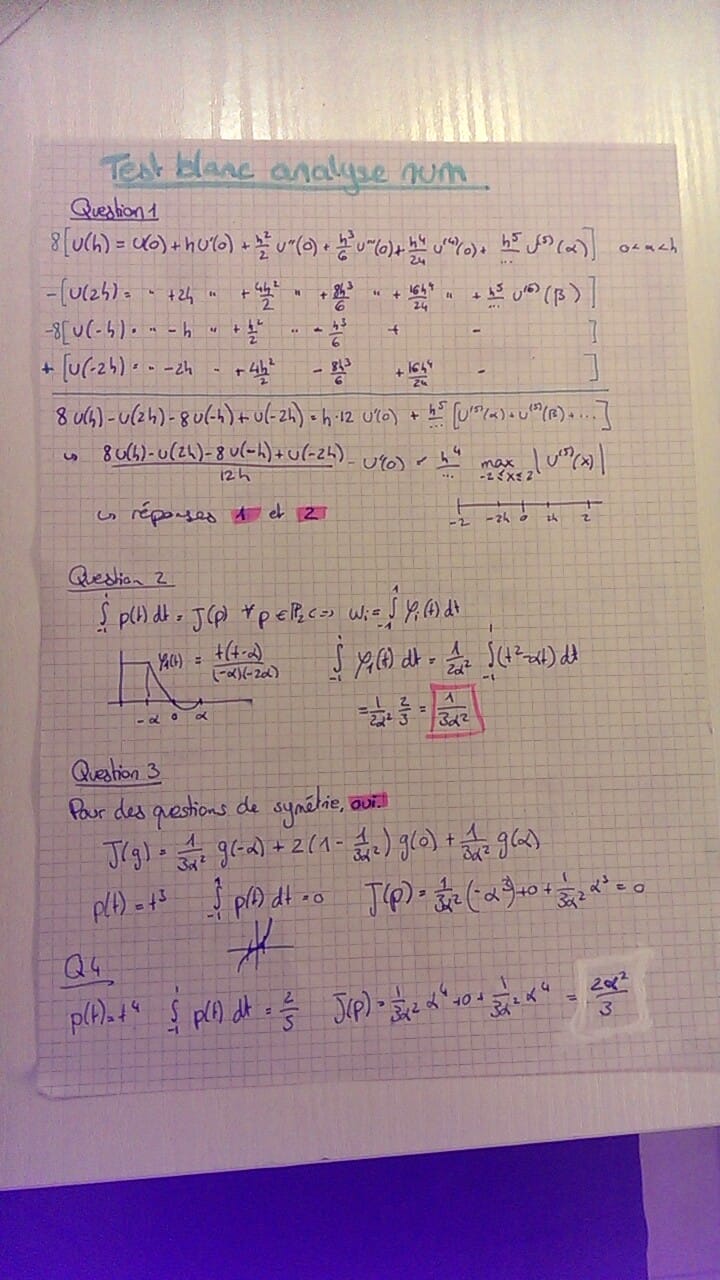 Test blanc analyse num
Question 1
8[U(h) = U(0) + hU'(0) + h²/2 U''(0) + h³/6 U'''(0) + h⁴/24 U⁽⁴⁾(0) + h⁵/... U⁽⁵⁾(α)] 0<α<h
-[U(2h) = " +2h " + 4h²/2 " + 8h³/6 " + 16h⁴/24 " + h⁵/... U⁽⁵⁾(β)]
-8[U(-h) = " -h " + h²/2 " - h³/6 + - ]
+[U(-2h) = " -2h " + 4h²/2 - 8h³/6 + 16h⁴/24 - ]
8U(h) - U(2h) - 8U(-h) + U(-2h) = h·12 U'(0) + h⁵/... [U⁽⁵⁾(α) + U⁽⁵⁾(β) + ...]
↳ (8U(h) - U(2h) - 8U(-h) + U(-2h))/12h - U'(0) = h⁴/... max |U⁽⁵⁾(x)| -2≤x≤2
↳ réponses 1 et 2
-2 -2h 0 2h 2
Question 2
∫₋₁¹ p(t) dt = J(p) ∀p ∈ ℙ₂ <=> Wi = ∫₋₁¹ φi(t) dt
φ₁(t) = t(t-α)/((-α)(-2α)) ∫₋₁¹ φ₁(t) dt = 1/2α² ∫₋₁¹ (t²-αt) dt
-α 0 α
= 1/2α² 2/3 = 1/3α²
Question 3
Pour des questions de symétrie, oui.
J(g) = 1/3α² g(-α) + 2(1 - 1/3α²) g(0) + 1/3α² g(α)
p(t) = t³ ∫₋₁¹ p(t) dt = 0 J(p) = 1/3α² (-α³) + 0 + 1/3α² α³ = 0
Q4
p(t) = t⁴ ∫₋₁¹ p(t) dt = 2/5 J(p) = 1/3α² α⁴ + 0 + 1/3α² α⁴ = 2α²/3